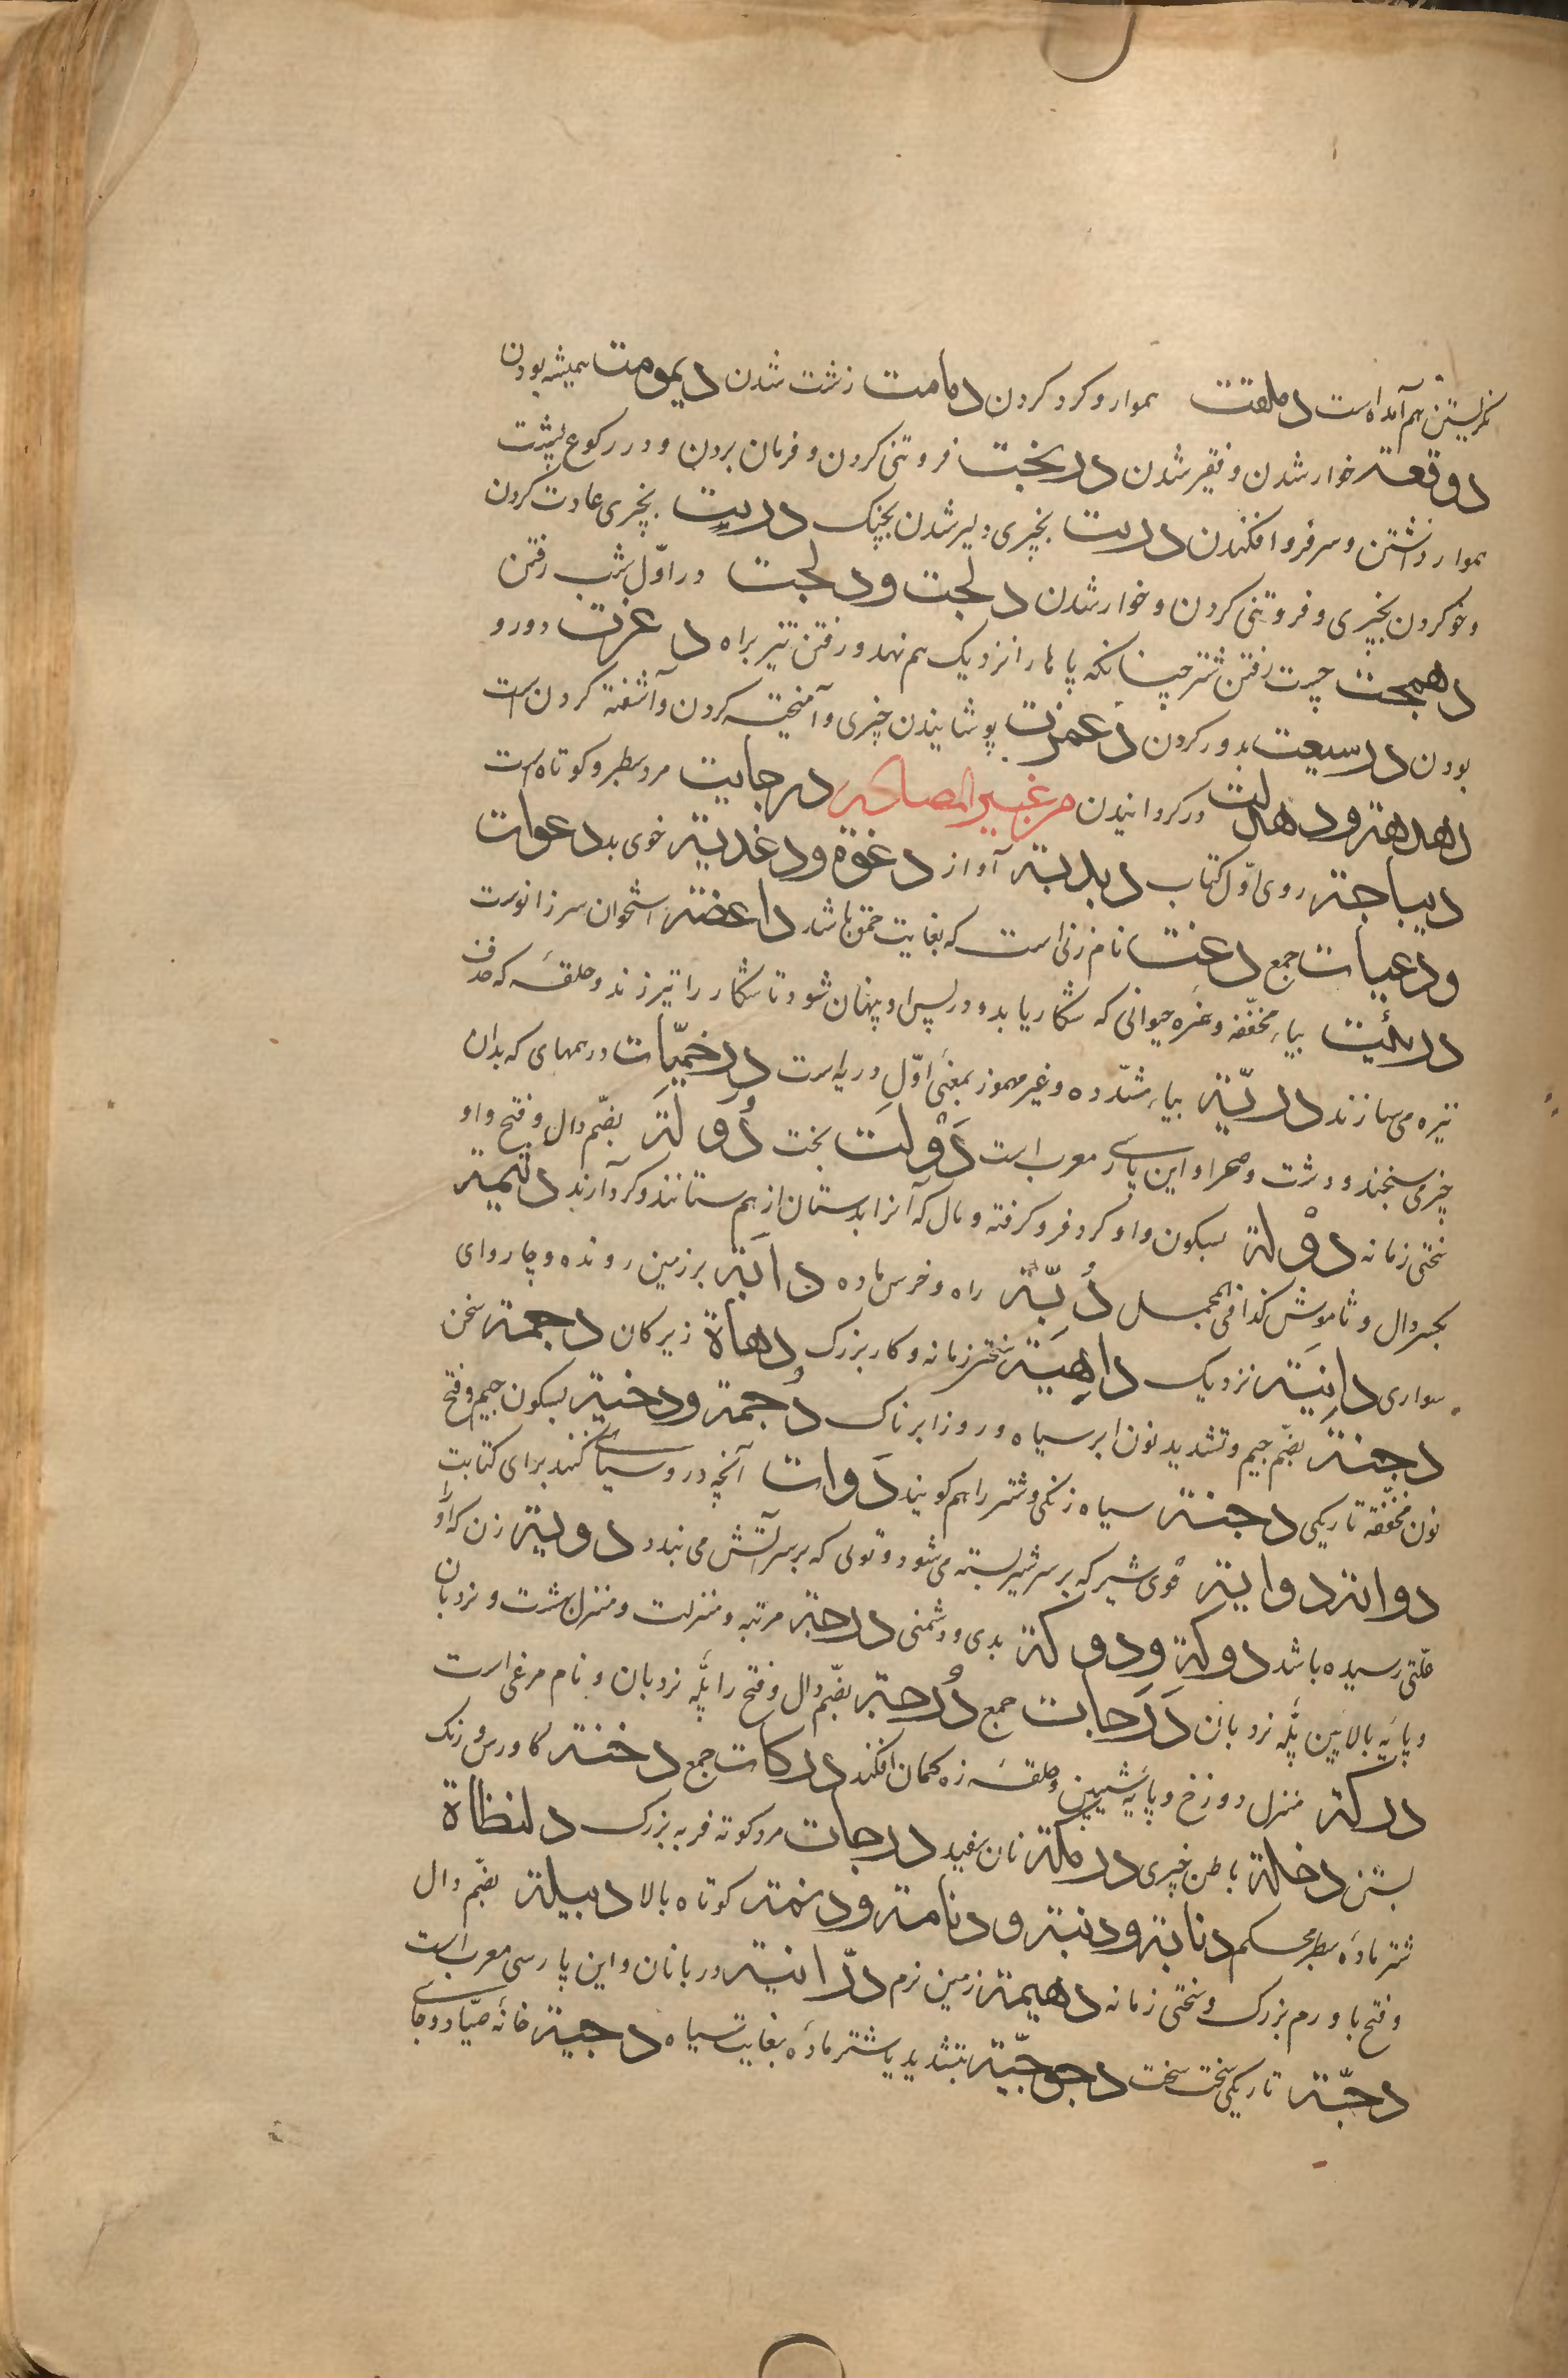 نگریستن هم آمده است دملقت هموار و گرد کردن دمامت زشت شدن دیمومت همیشه بودن
دوقعة خوار شدن و فقیر شدن دربخت فروتنی کردن و فرمان بردن و در رکوع پشت
هموار داشتن و سر فرو افکندن دربت بچیزی دلیر شدن بجنگ دربت بچیزی عادت کردن
و خو کردن بچیزی و فروتنی کردن و خوار شدن دلجت و دلجت در اوّل شب رفتن
دهمجت چست رفتن شتر چنانکه پایها را نزدیک هم نهد و رفتن تیز براه دعرت دور و
بودن درسیعت بدور کردن دعمرت پوشانیدن چیزی و آمیخته کردن و آشفته کردن است
دهدهة و دهدلت در گردانیدن من غیر المصادر درحایت مرد سطبر و کوتاه است
دیباجة روی اوّل کتاب دبدبة آواز دغوة و دغدیة خوی بد دعوات
و دعیات جمع دعت نام زنی است که بغایت حمق باشد داعضة استخوان سر زانوست
دریئت بیاء مخففه و غیره حیوانی که شکار یابد و در پس او پنهان شود تا شکار را تیر زند و حلقه که هدف
نیزه می سازند دریّة بیاء مشدّده و غیر مهموز بمعنی اوّل دریه است درخمیّات درمهای که بدان
چیز می سنجند و دشت و صحرا و این پارسی معرب است دَوْلَت بخت دُوَلَة بضم دال و فتح واو
سختی زمانه دوْلة بسکون واو گرد فرو گرفته و مال که آنرا بدستان از هم ستانند و گرد آرند دئمة
بکسر دال و ثاموش کذا فی المجمل دُبّة راه و خرس ماده دابّة بر زمین رونده و چاروای
سواری دانیَة نزدیک داهِیَة سختی زمانه و کار بزرگ دهاة زیرکان دجمة سخن
دجنّة بضم جیم و تشدید نون ابر سیاه و روز ابرناک دُجمة و دخیة بسکون جیم و فتح
نون مخففه تاریکی دجنة سیاه رنگی و شتر را هم گویند دَوات آنچه در و سیاهی کنند برای کتابت
دوانة دوایة قوی شیر که بر سر شیر بسته می شود و تولی که بر سر آتش می بندد دویة زن که او را
علتی رسیده باشد دوکة و دوکة بدی و دشمنی درجة مرتبه و منزلت و منزل بهشت و نردبان
و پایه بالایین پله نردبان دَرَجات جمع دُرجة بضم دال و فتح را پله نردبان و نام مرغی است
درکة منزل دوزخ و پایه شیبین و حلقه زه کمان افکند درکات جمع دخنة گاورس و رنگ
بستن دخلة باطن چیزی درمکة نان سفید درجات مرد کوته فربه بزرگ دلنظاة
شتر ماده سطبر محکم دنابة و دنبة و دنامة و دنمة کوتاه بالا دبیلة بضم دال
و فتح با ورم بزرگ و سختی زمانه دهیمة زمین نرم درّانیة دربانان و این پارسی معرب است
دجنّة تاریکی سخت سخت دجوجیّة بتشدید یا شتر ماده بغایت سیاه دجیة خانه صیاد و جای